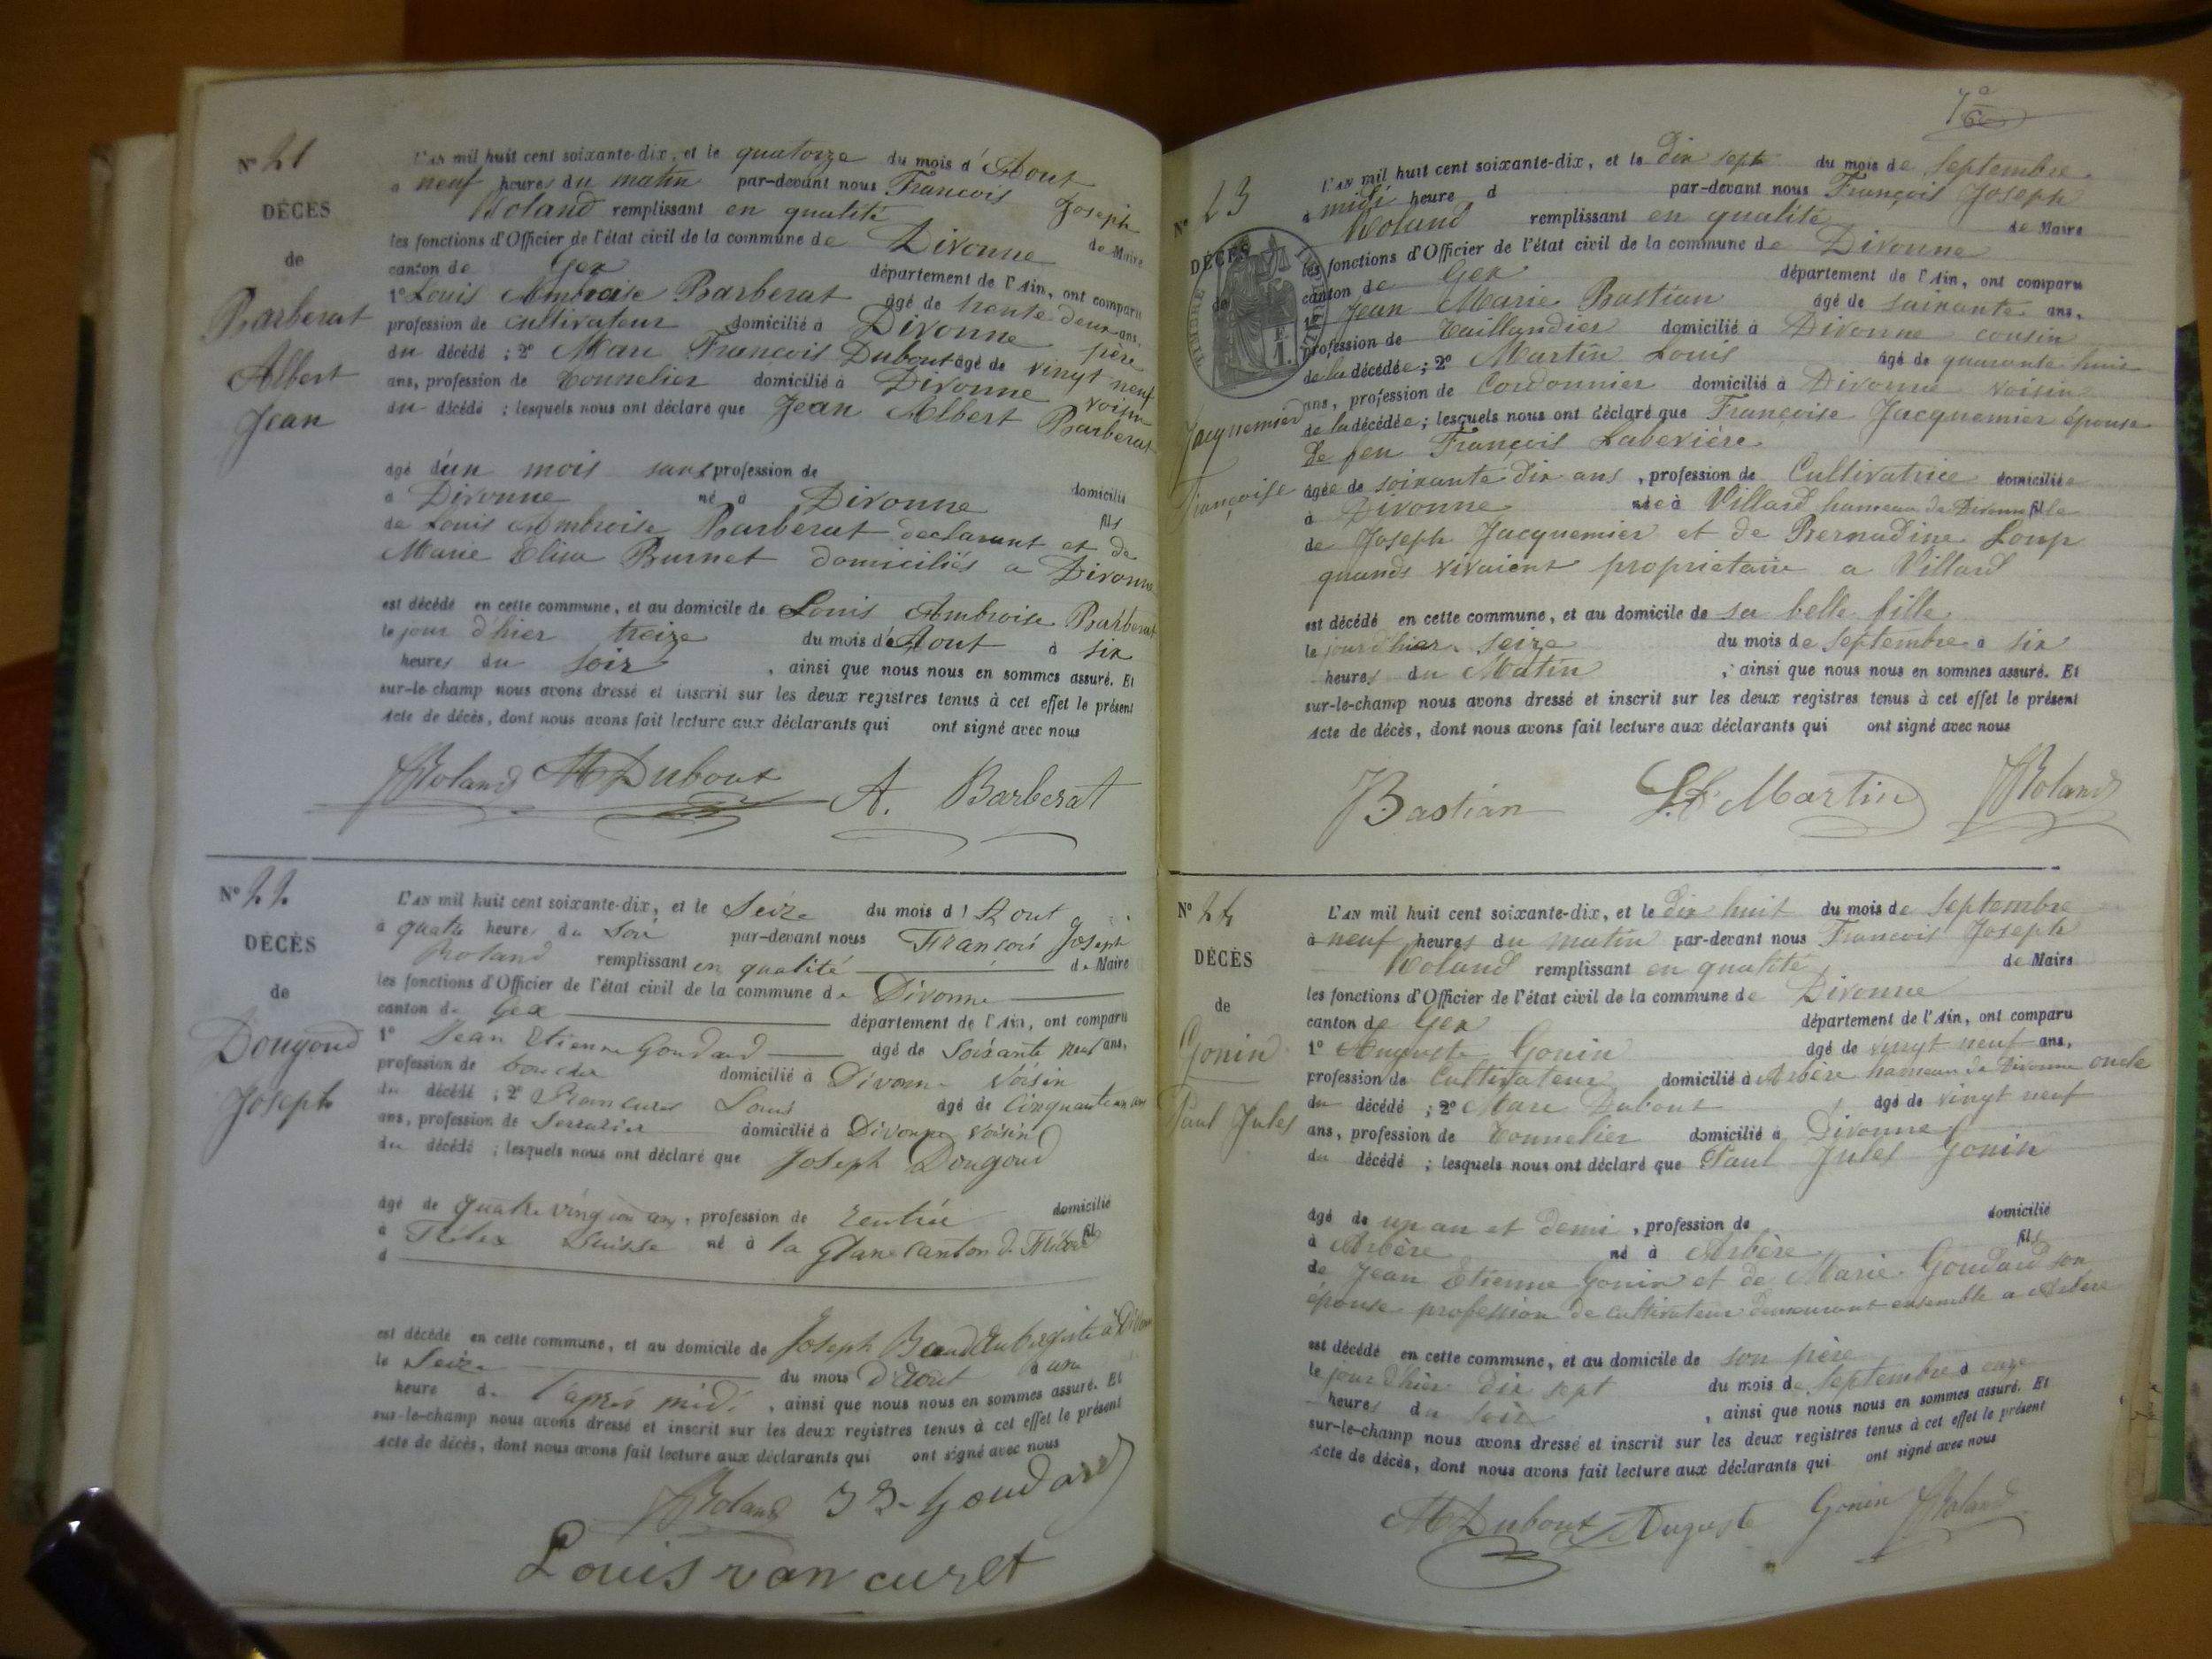 N° 21
DÉCÈS
de
Barberat
Albert
Jean
L'AN mil huit cent soixante-dix, et le quatorze du mois d'Aout
à neuf heures du matin par-devant nous François Joseph
Roland remplissant en qualité de Maire
les fonctions d'Officier de l'état civil de la commune de Divonne
canton de Gex département de l'Ain, ont comparu
1° Louis Ambroise Barberat âgé de trente deux ans,
profession de cultivateur domicilié à Divonne père
du décédé ; 2° Marc François Dubout âgé de vingt neuf
ans, profession de Tonnelier domicilié à Divonne voisin
du décédé ; lesquels nous ont déclaré que Jean Albert Barberat
âgé d'un mois sans profession de domicilié
à Divonne né à Divonne fils
de Louis Ambroise Barberat declarant et de
Marie Elisa Burnet domiciliés a Divonne
est décédé en cette commune, et au domicile de Louis Ambroise Barberat
le jour d'hier treize du mois d'Aout à six
heures du soir, ainsi que nous nous en sommes assuré. Et
sur-le-champ nous avons dressé et inscrit sur les deux registres tenus à cet effet le présent
Acte de décès, dont nous avons fait lecture aux déclarants qui ont signé avec nous
Roland M Dubout A. Barberat
N° 22
DÉCÈS
de
Dougoud
Joseph
L'AN mil huit cent soixante-dix, et le Seize du mois d'Aout
à quatre heures du Soir par-devant nous François Joseph
Roland remplissant en qualité de Maire
les fonctions d'Officier de l'état civil de la commune de Divonne
canton de Gex département de l'Ain, ont comparu
1° Jean Etienne Goudard âgé de Soixante neuf ans,
profession de boucher domicilié à Divonne Voisin
du décédé ; 2° Louis âgé de Cinquante un
ans, profession de Serrurier domicilié à Divonne voisin
du décédé ; lesquels nous ont déclaré que Joseph Dougoud
âgé de quatre vingt un ans, profession de rentier domicilié
à Trélex Suisse né à la Glane canton de Fribourg fils
d
est décédé en cette commune, et au domicile de Joseph Baud Aubergiste à Divonne
le Seize du mois d'Aout à une
heure de l'après midi, ainsi que nous nous en sommes assuré. Et
sur-le-champ nous avons dressé et inscrit sur les deux registres tenus à cet effet le présent
Acte de décès, dont nous avons fait lecture aux déclarants qui ont signé avec nous
Roland Goudard
Louis van curet
N° 23
DÉCÈS
de
TIMBRE
Jacquemier
Françoise
L'AN mil huit cent soixante-dix, et le dix sept du mois de Septembre
à midi heure d par-devant nous François Joseph
Roland remplissant en qualité de Maire
les fonctions d'Officier de l'état civil de la commune de Divonne
canton de Gex département de l'Ain, ont comparu
Jean Marie Bastian âgé de soixante ans,
profession de Taillandier domicilié à Divonne cousin
de la décédée ; 2° Martin Louis âgé de quarante huit
ans, profession de Cordonnier domicilié à Divonne voisin
de la décédée ; lesquels nous ont déclaré que Françoise Jacquemier épouse
de feu François Laberière
âgée de soixante dix ans, profession de Cultivatrice domiciliée
à Divonne née à Villard hameau de Divonne fille
de Joseph Jacquemier et de Bernadine Loup
quands vivaient propriétaire a Villard
est décédé en cette commune, et au domicile de sa belle fille
le jour d'hier seize du mois de Septembre à six
heures du Matin, ainsi que nous nous en sommes assuré. Et
sur-le-champ nous avons dressé et inscrit sur les deux registres tenus à cet effet le présent
Acte de décès, dont nous avons fait lecture aux déclarants qui ont signé avec nous
Bastian Ls Martin Roland
N° 24
DÉCÈS
de
Gonin
Paul Jules
L'AN mil huit cent soixante-dix, et le dix huit du mois de Septembre
à neuf heures du matin par-devant nous François Joseph
Roland remplissant en qualité de Maire
les fonctions d'Officier de l'état civil de la commune de Divonne
canton de Gex département de l'Ain, ont comparu
1° Auguste Gonin âgé de vingt neuf ans,
profession de Cultivateur domicilié à Arbère hameau de Divonne oncle
du décédé ; 2° Marc Dubout âgé de vingt neuf
ans, profession de Tonnelier domicilié à Divonne
du décédé ; lesquels nous ont déclaré que Paul Jules Gonin
âgé de un an et demi, profession de domicilié
à Arbère né à Arbère fils
de Jean Etienne Gonin et de Marie Goudard son
épouse profession de cultivateur demeurant ensemble a Arbère
est décédé en cette commune, et au domicile de son père
le jour d'hier dix sept du mois de Septembre à onze
heures du soir, ainsi que nous nous en sommes assuré. Et
sur-le-champ nous avons dressé et inscrit sur les deux registres tenus à cet effet le présent
Acte de décès, dont nous avons fait lecture aux déclarants qui ont signé avec nous
M Dubout Auguste Gonin Roland